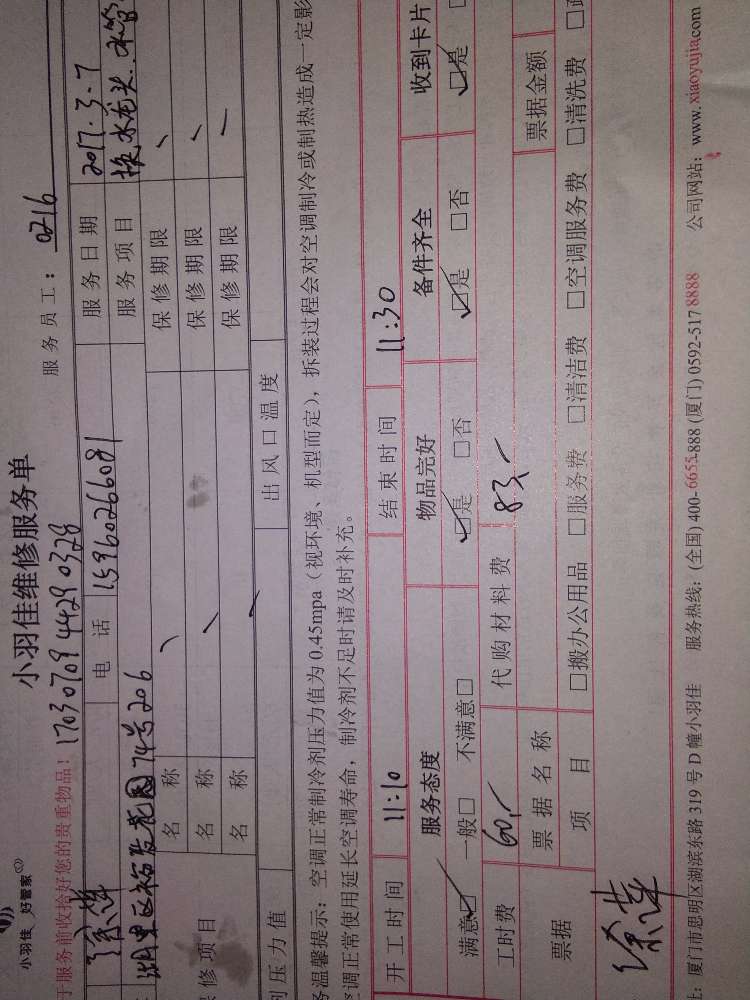 小羽佳 好管家
小羽佳维修服务单
于服务前收拾好您的贵重物品! 1703070944290328 服务员工: 0216
徐萍 电话 15960266081 服务日期 2017.3.7
湖里区裕发花园74号206 服务项目 换水龙头.水管
名称 保修期限
保修项目 名称 保修期限
名称 保修期限
剂压力值 出风口温度
务温馨提示:空调正常制冷剂压力值为0.45mpa(视环境、机型而定),拆装过程会对空调制冷或制热造成一定影
空调正常使用延长空调寿命,制冷剂不足时请及时补充。
开工时间 11:10 结束时间 11:30
服务态度 物品完好 备件齐全 收到卡片
满意☑ 一般□ 不满意□ ☑是 □否 ☑是 □否 ☑是
工时费 60.- 代购材料费 83.-
票据名称 票据金额
票据 项目 □搬办公用品 □服务费 □清洁费 □空调服务费 □清洗费
徐萍
址:厦门市思明区湖滨东路319号D幢小羽佳 服务热线:(全国)400-6655-888 (厦门)0592-517 8888 公司网站:www.xiaoyujia.com